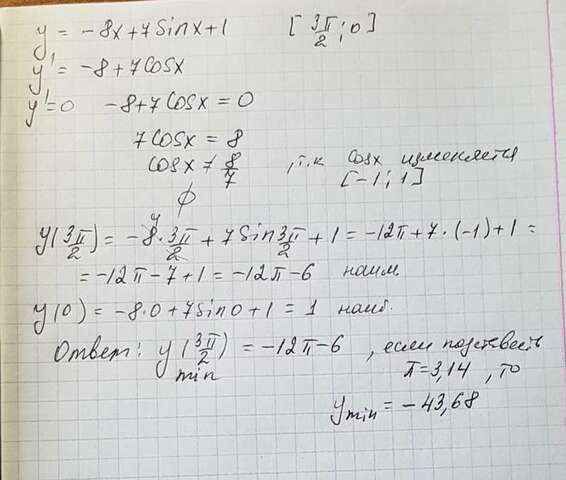 y = -8x+7sinx+1 [3π/2; 0]
y' = -8+7cosx
y'=0 -8+7cosx = 0
7cosx = 8
cosx ≠ 8/7 , т.к cosx изменяется
[-1; 1]
∅
y(3π/2) = -8·3π/2 + 7sin3π/2 + 1 = -12π+7·(-1)+1 =
= -12π-7+1 = -12π-6 наим
y(0) = -8·0+7sin0+1 = 1 наиб.
Ответ: y(3π/2) = -12π-6 , если подставить
min π=3,14 , то
ymin = -43,68